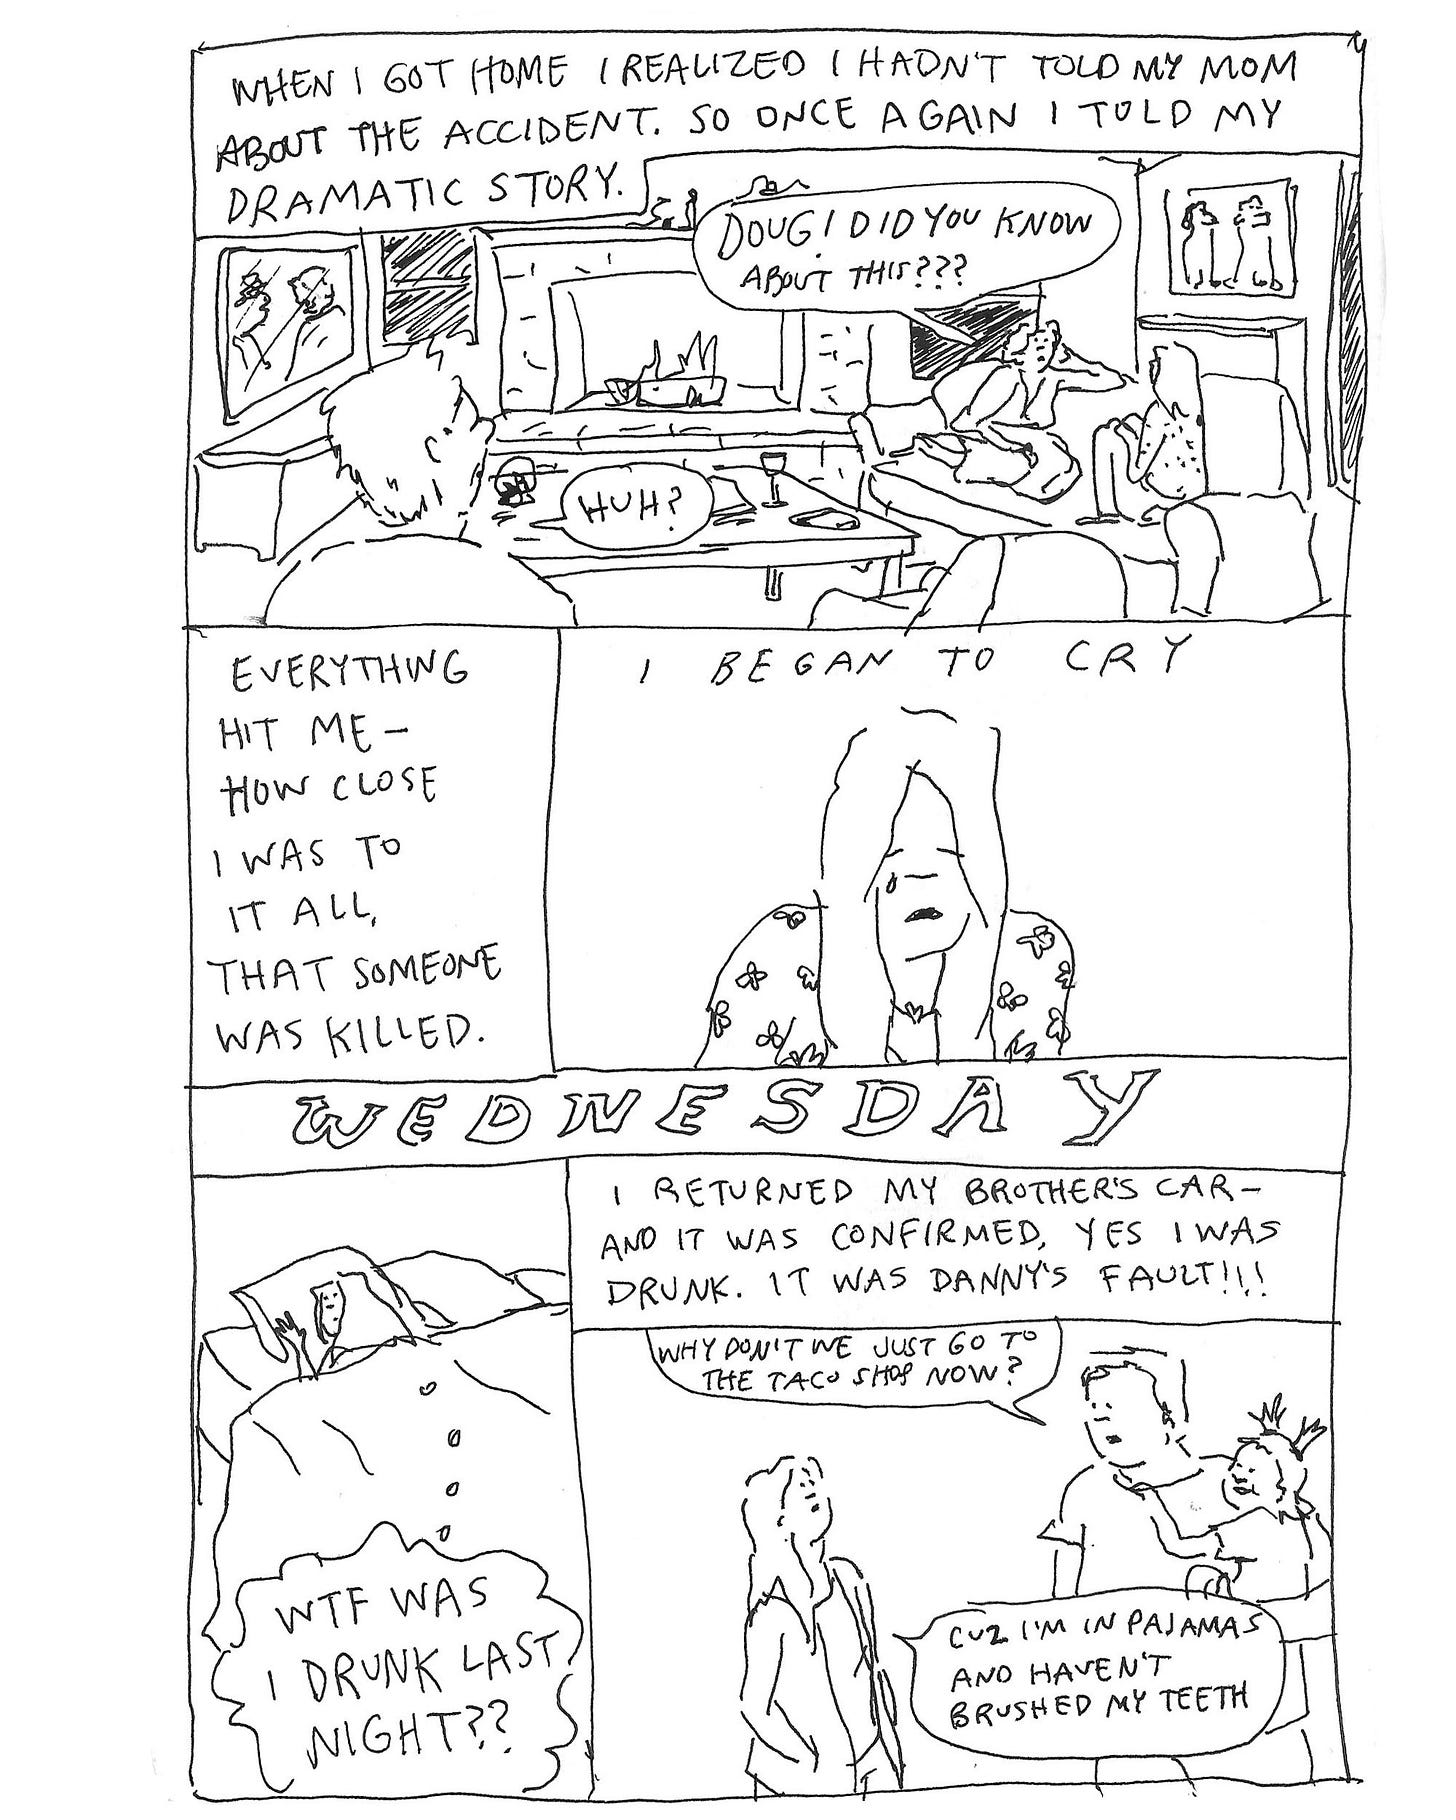 WHEN I GOT HOME I REALIZED I HADN'T TOLD MY MOM
ABOUT THE ACCIDENT. SO ONCE AGAIN I TOLD MY
DRAMATIC STORY.
DOUG! DID YOU KNOW
ABOUT THIS???
HUH?
EVERYTHING
HIT ME –
HOW CLOSE
I WAS TO
IT ALL,
THAT SOMEONE
WAS KILLED.
I BEGAN TO CRY
WEDNESDAY
WTF WAS
I DRUNK LAST
NIGHT??
I RETURNED MY BROTHER'S CAR –
AND IT WAS CONFIRMED, YES I WAS
DRUNK. IT WAS DANNY'S FAULT!!!
WHY DON'T WE JUST GO TO
THE TACO SHOP NOW?
CUZ I'M IN PAJAMAS
AND HAVEN'T
BRUSHED MY TEETH